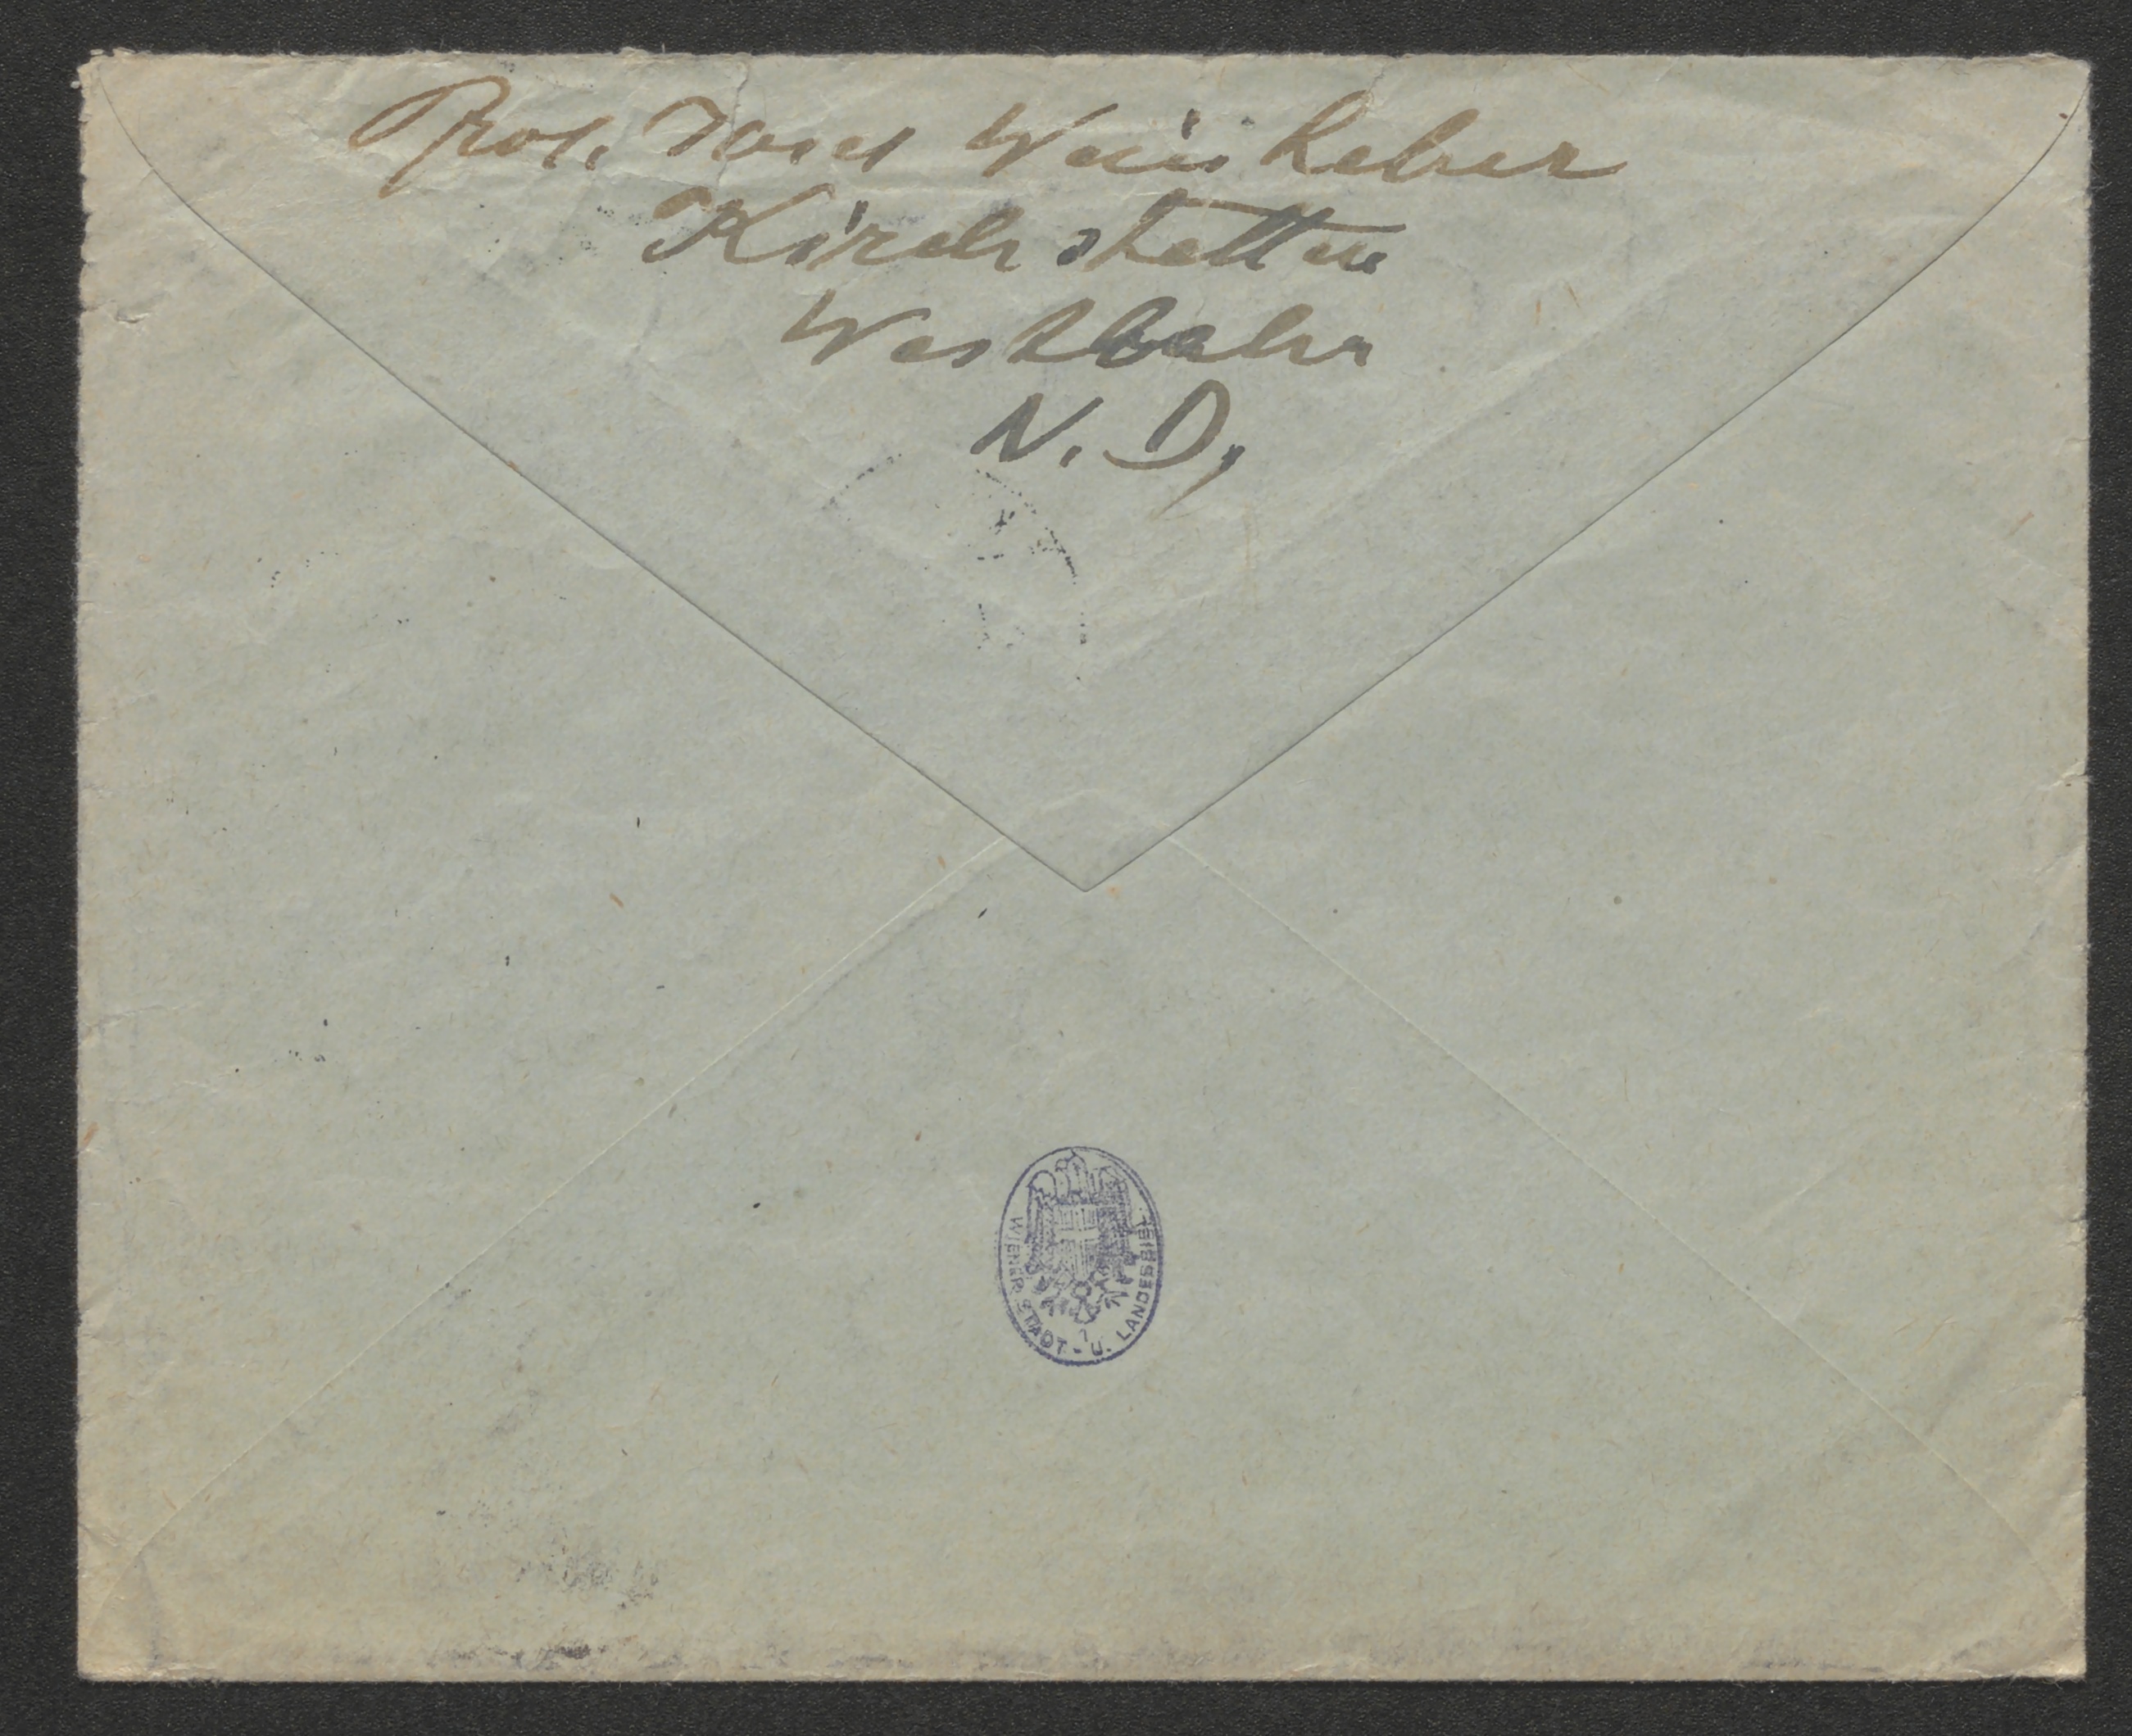 Prof. Josef Weinheber
Kirchstetten
Westbahn
N. D.
WIENER STADT- U. LANDESBIBL.